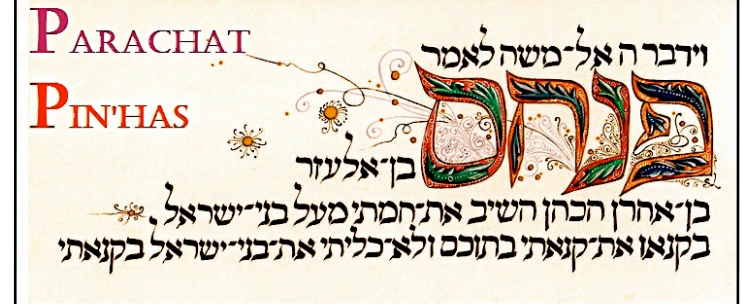 PARACHAT
PIN'HAS
וידבר ה אל־משה לאמר
פנחס
בן־אלעזר
בן־אהרן הכהן השיב את־חמתי מעל בני־ישראל
בקנאו את־קנאתי בתוכם ולא־כליתי את־בני־ישראל בקנאתי